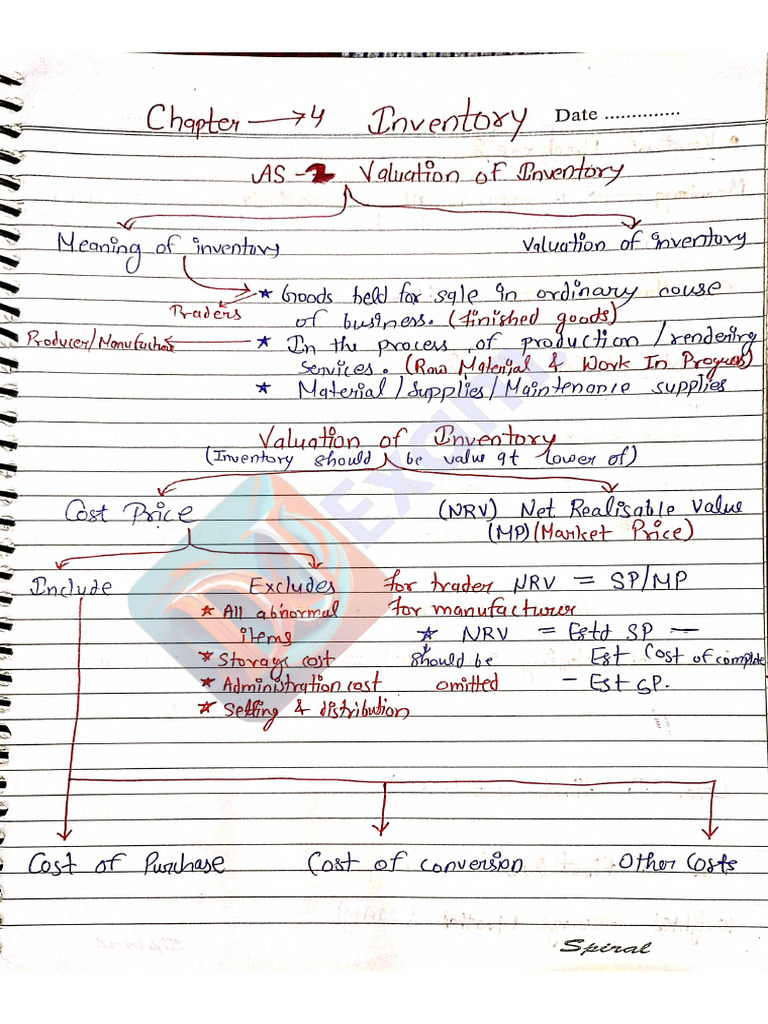 Chapter → 4 Inventory Date ..............
AS - 2 Valuation of Inventory
Meaning of inventory Valuation of inventory
* Goods held for sale in ordinary couse
Traders
of business. (finished goods)
Producer/Manufacture * In the process of production / rendering
services. (Raw Material & Work In Progress)
* Material / Supplies / Maintenance supplies
Valuation of Inventory
(Inventory should be value at lower of)
Cost Price (NRV) Net Realisable Value
(MP) (Market Price)
Include Excludes for trader NRV = SP/MP
* All abnormal for manufacturer
items * NRV = Estd SP —
* Storage cost should be Est Cost of complete
* Administration cost omitted - Est SP.
* Selling & distribution
Cost of Purchase Cost of conversion Other Costs
Spiral
Exam